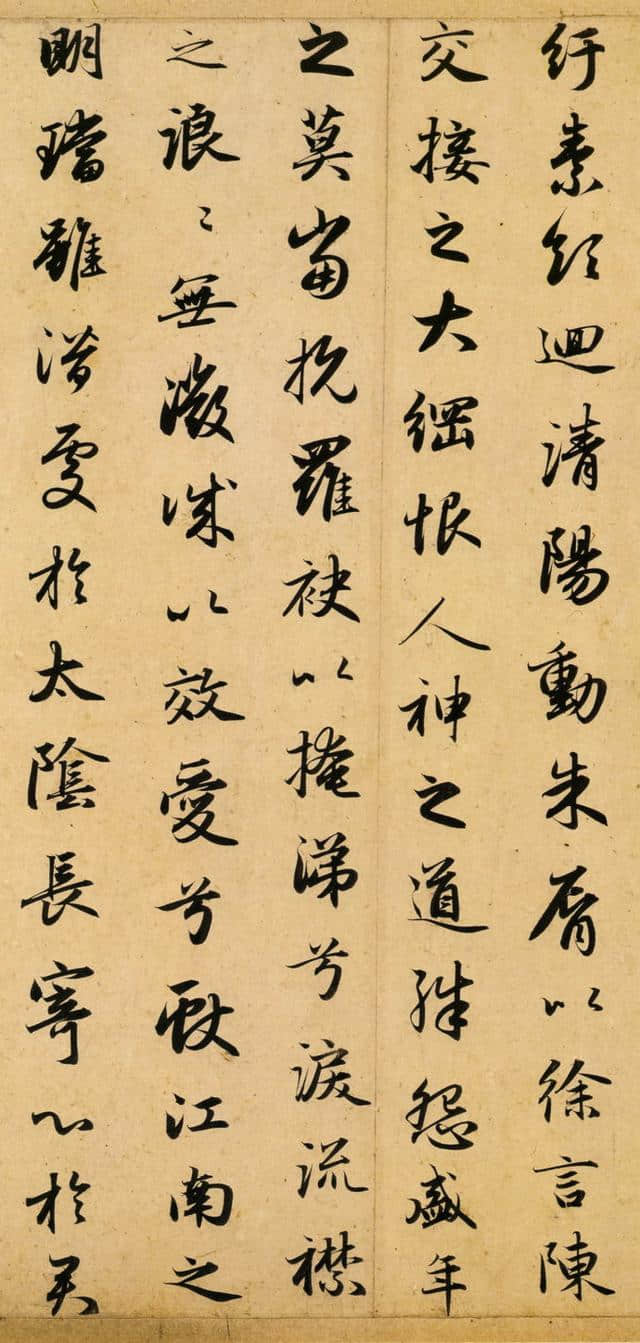 紆素領迴清陽動朱脣以徐言陳
交接之大綱恨人神之道殊怨盛年
之莫當抗羅袂以掩涕兮淚流襟
之浪〻無微誠以效愛兮獻江南之
明璫雖潛處於太陰長寄心於君